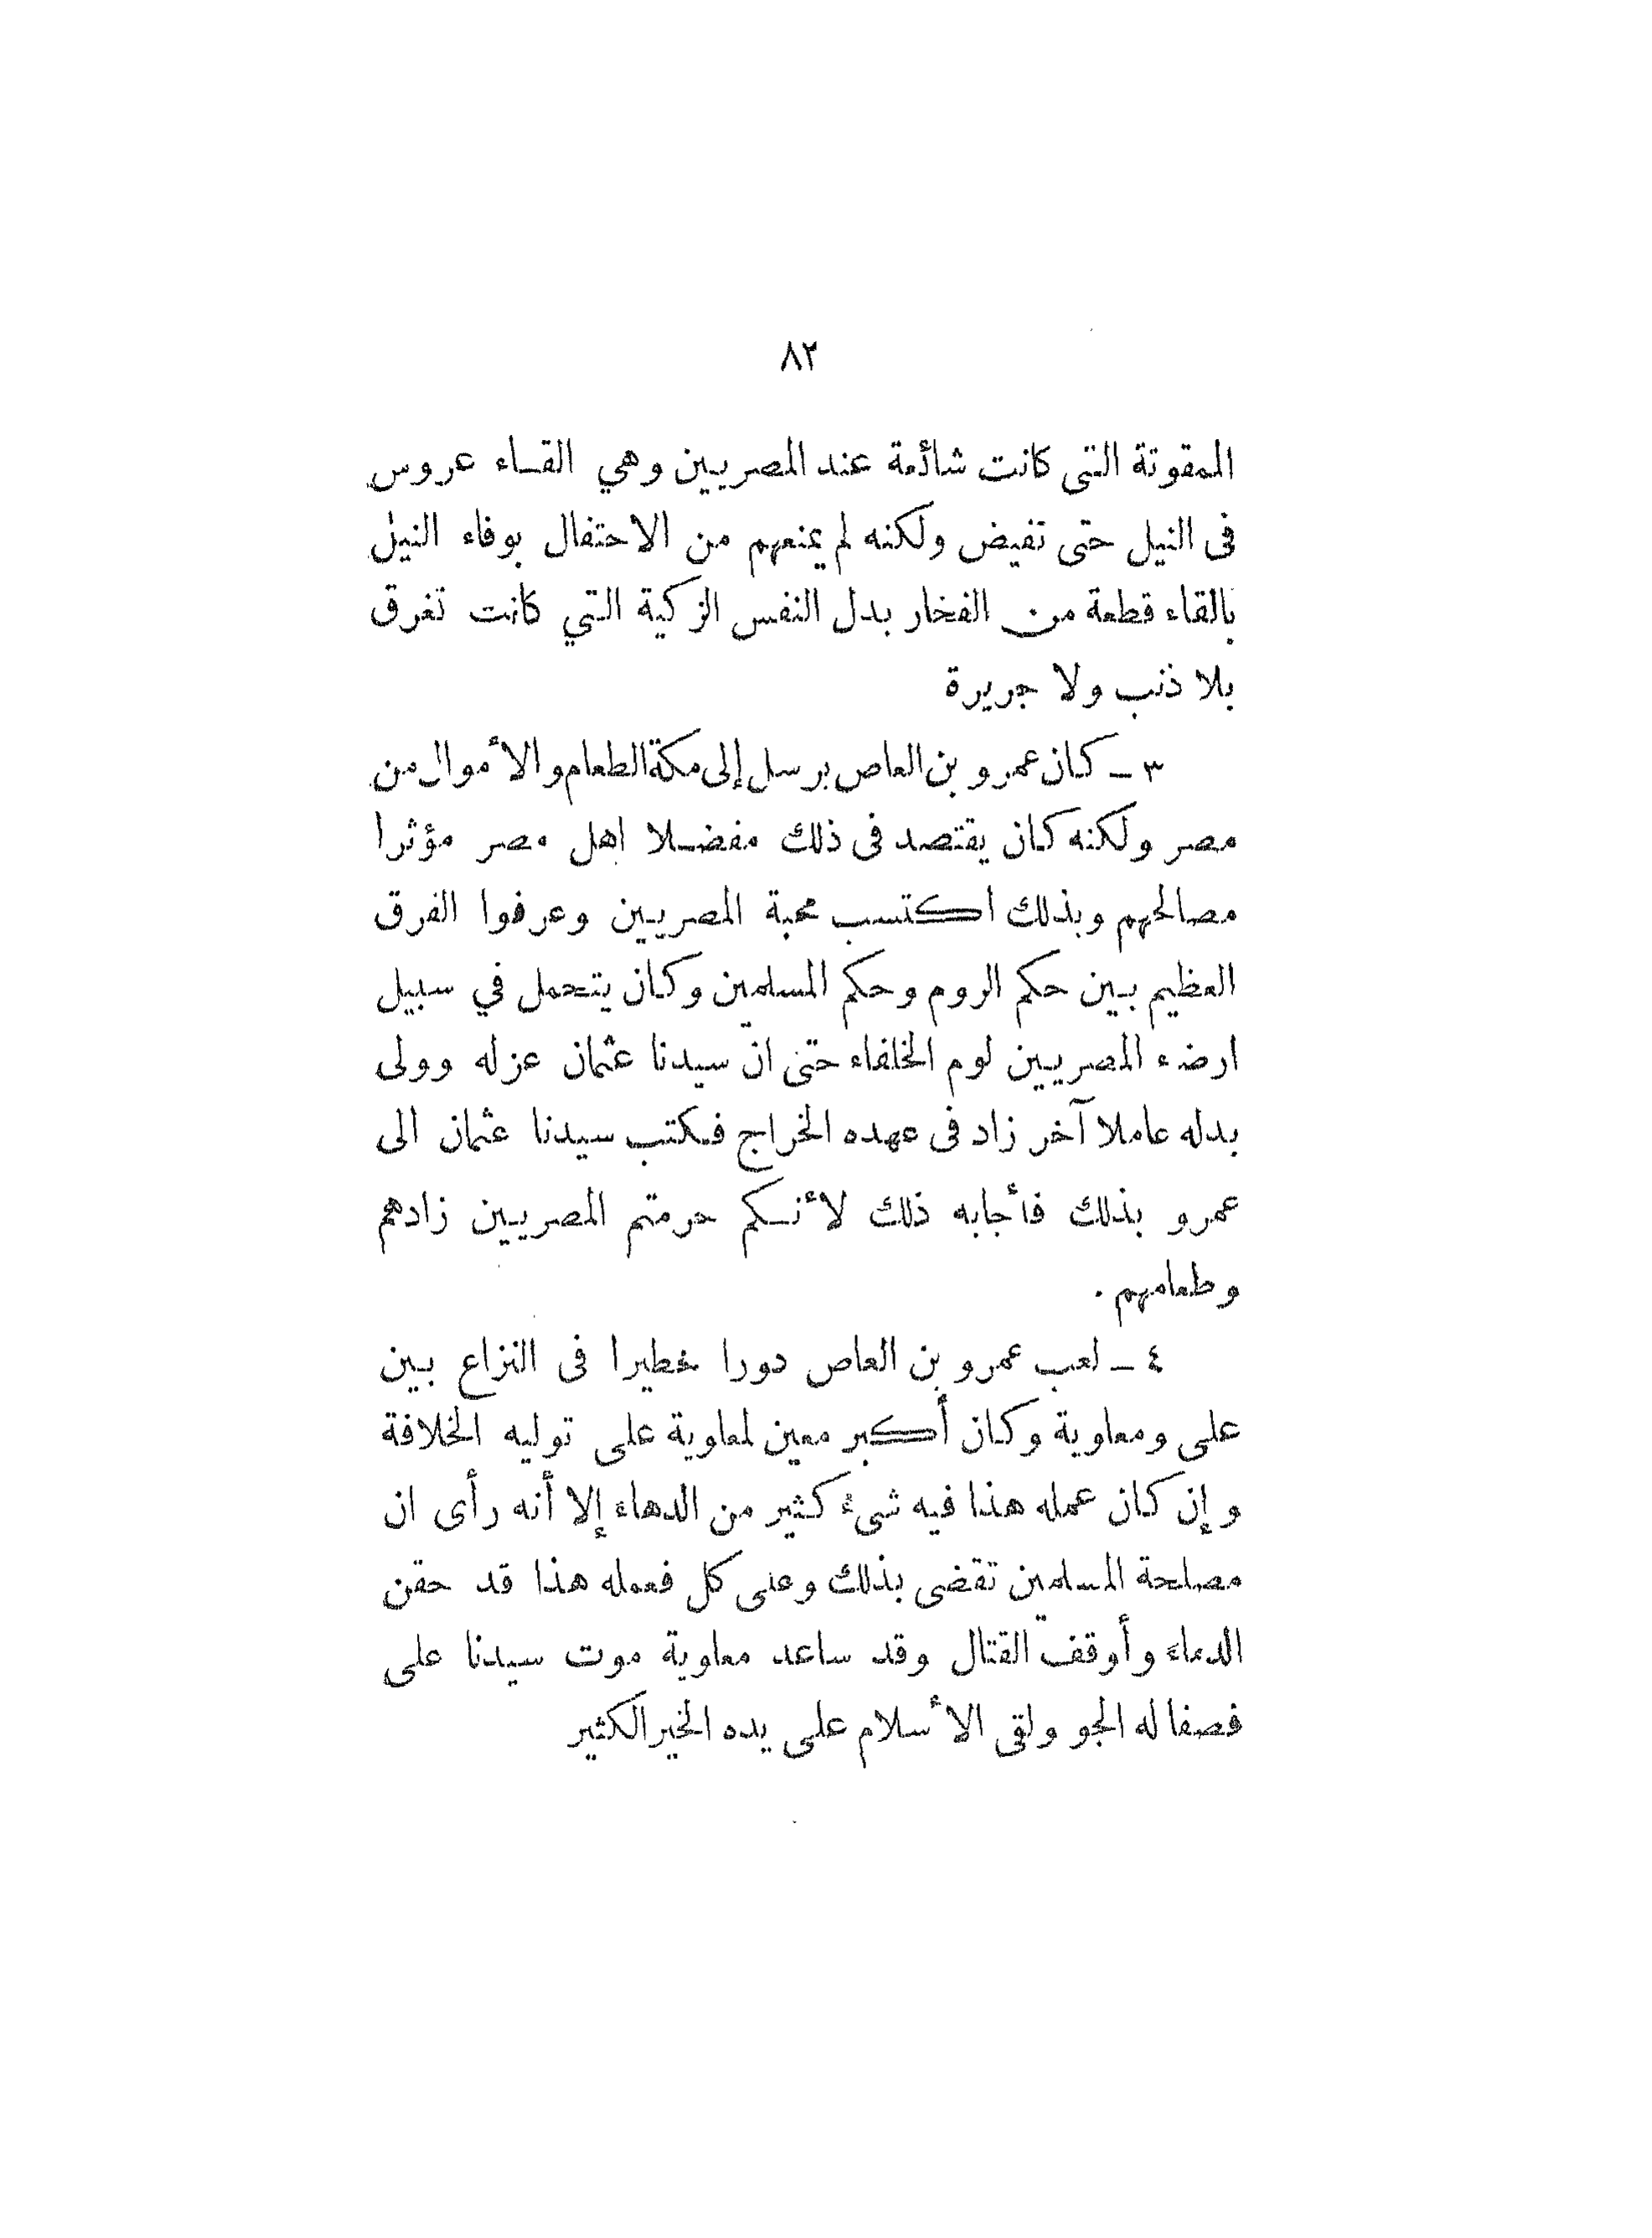 ٨٢
الممقوتة التى كانت شائعة عند المصريين وهي القاء عروس
فى النيل حتى تفيض ولكنه لم يمنعهم من الاحتفال بوفاء النيل
بالقاء قطعة من الفخار بدل النفس الزكية التي كانت تغرق
بلا ذنب ولا جريرة
٣ ــ كان عمرو بن العاص يرسل إلى مكة الطعام والأموال من
مصر ولكنه كان يقتصد فى ذلك مفضلا اهل مصر مؤثرا
مصالحهم وبذلك اكتسب محبة المصريين وعرفوا الفرق
العظيم بين حكم الروم وحكم المسلمين وكان يتحمل في سبيل
ارضاء المصريين لوم الخلفاء حتى انّ سيدنا عثمان عزله وولى
بدله عاملا آخر زاد فى عهده الخراج فكتب سيدنا عثمان الى
عمرو بذلك فأجابه ذلك لأنكم حرمتم المصريين زادهم
وطعامهم .
٤ ــ لعب عمرو بن العاص دورا خطيرا فى النزاع بين
على ومعاوية وكان أكبر معين لمعاوية على توليه الخلافة
وإن كان عمله هذا فيه شىء كثير من الدهاء إلا أنه رأى ان
مصلحة المسلمين تقضى بذلك وعلى كل فعمله هذا قد حقن
الدماء وأوقف القتال وقد ساعد معاوية موت سيدنا على
فصفا له الجو ولقى الأسلام على يده الخير الكثير